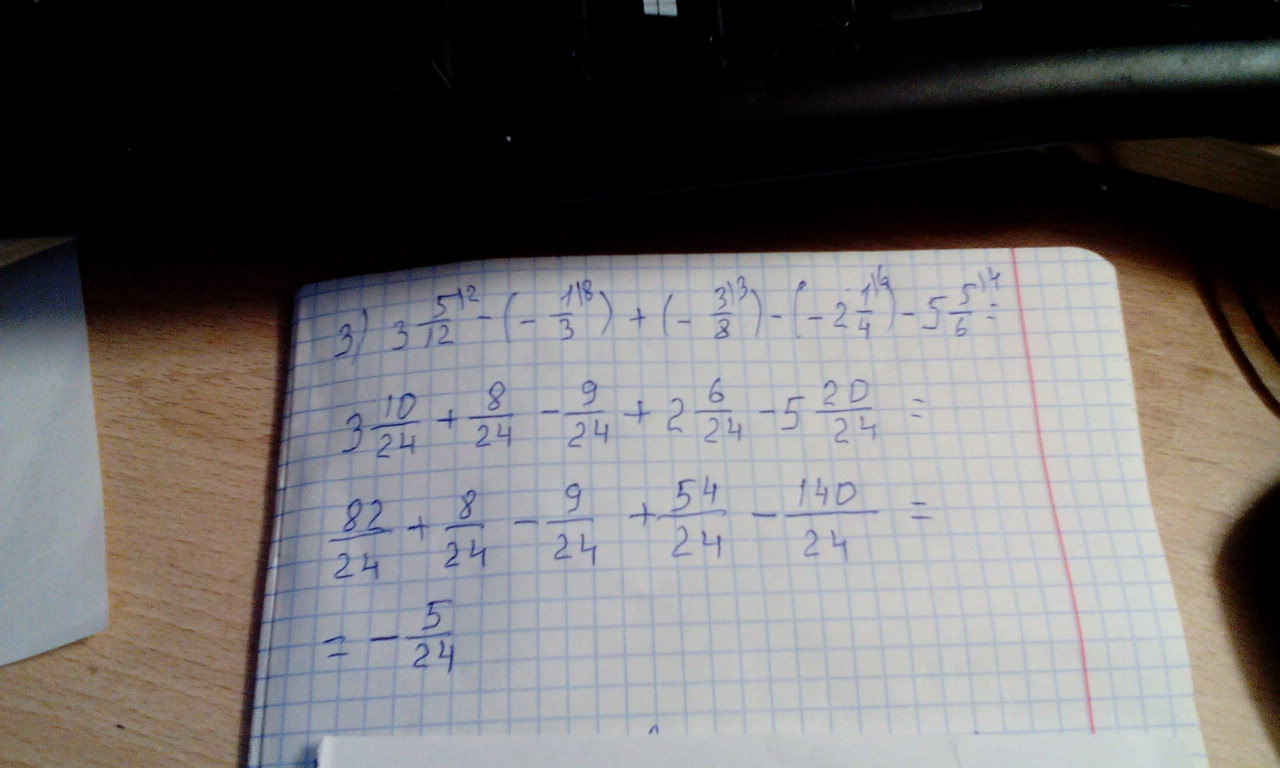 3) 3 5/12 \2 - (- 1/3 \8) + (- 3/8 \3) - (- 2 1/4 \6) - 5 5/6 \4 =
3 10/24 + 8/24 - 9/24 + 2 6/24 - 5 20/24 =
82/24 + 8/24 - 9/24 + 54/24 - 140/24 =
= - 5/24